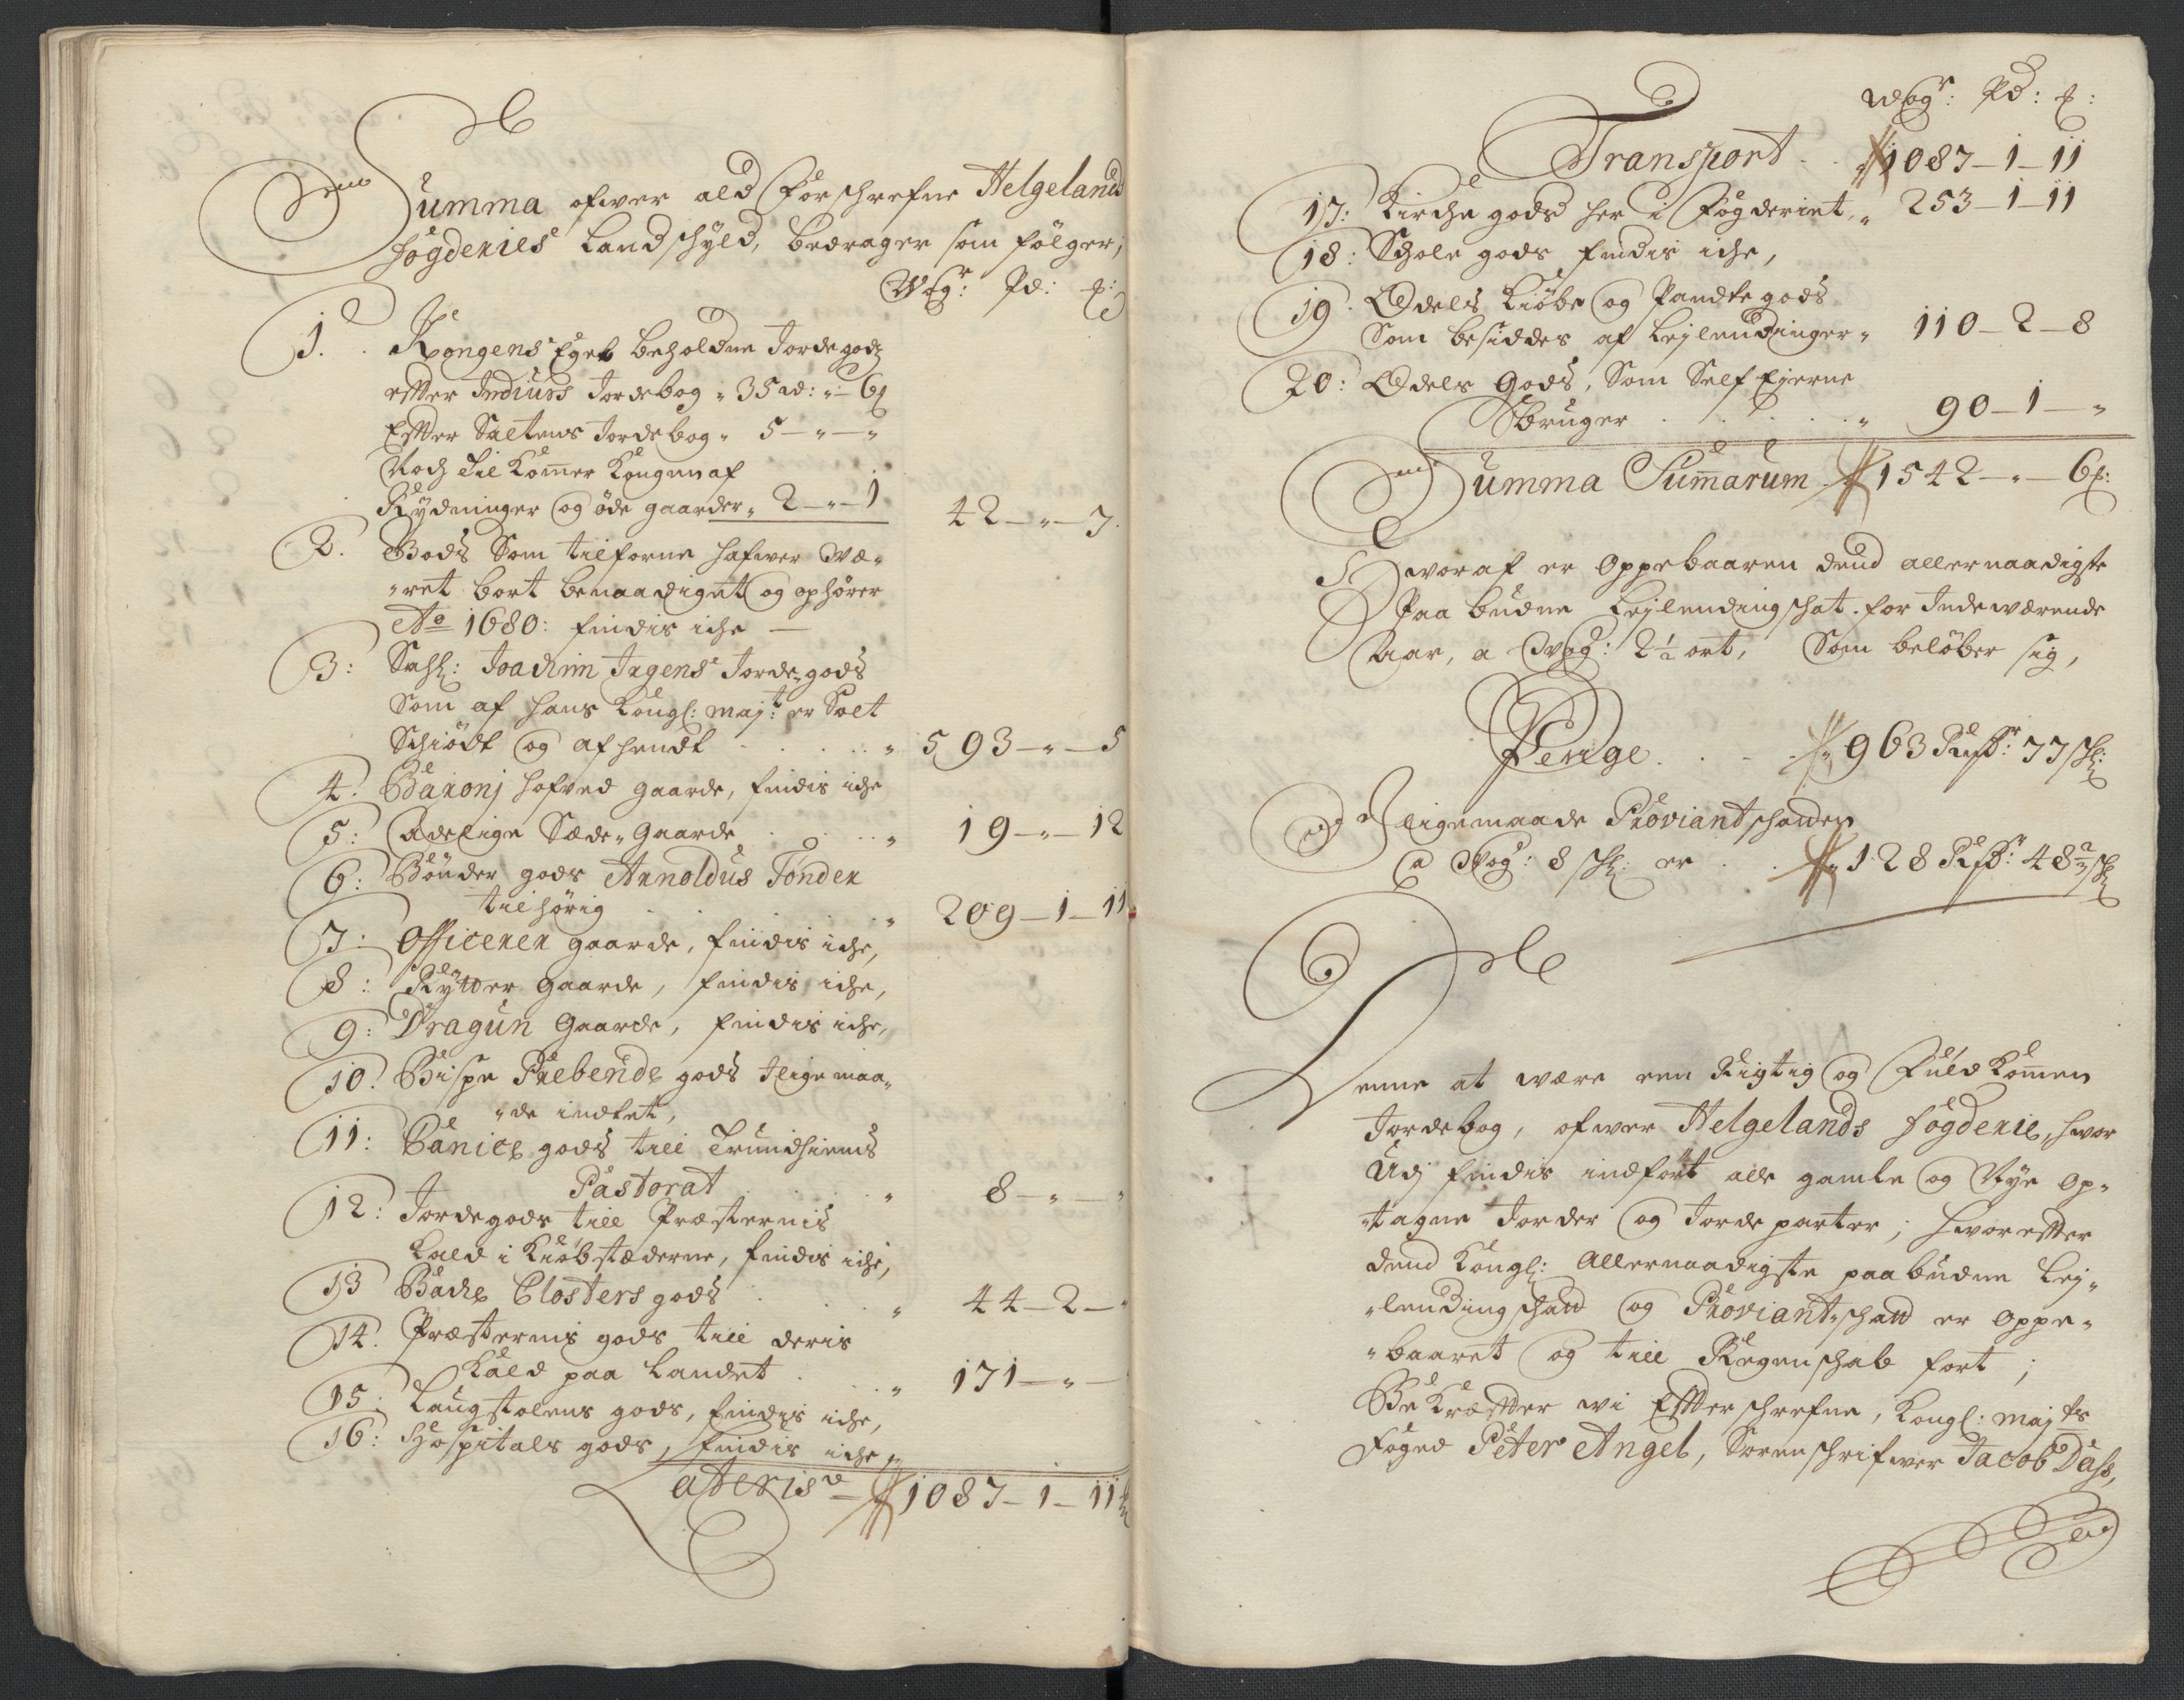 Summa ofwer ald Forschrefne Helgelands
fögderies Landschyld, bedrager som fölger;
Wog: Pd: ℔:
1. Kongens Eget beholdne Jordegodz
efter Indiürs Jordebog „ 35 W: „ — 6
Efter Saltens Jordebog „ 5 — „ — „
Noch til Kom̅er Kongen af
Rydninger og öde gaarder „ 2 — „ — 1
42 — „ — 7.
2. Gods Som tilforne hafwer wæ-
ret bort benaadiget og ophörer
Ao 1680: findis iche —
3: Sahl: Joachim Irgens Jorde-gods
Som af hans Kongl: Majt: er Solt
Schiödt og afhendt . . . „ 593 — „ — 5
4. Baronj hofved gaarde, findis iche
5: Adelige Sæde-Gaarde . . „ 19 — „ — 12
6: Bönder gods Arnoldus Tönder
tilhörig . . . „ 209 — 1 — 11
7: Officerer gaarde, findis iche,
8: Rytter Gaarde, findis iche,
9: Dragün Gaarde, findis iche,
10. Bispe Præbende gods Jligemaa-
de indtet,
11: Canice gods till Trundhiems
Pastorat . . . „ 8 — „ — „
12: Jordegods till Præsternis
Kald i Kiöbstæderne, findis iche,
13 Bache Closters gods . . „ 44 — 2 — „
14. Præsternis gods till deris
Kald paa Landet . . „ 171 — „ —
15. Laugstolens gods, findis iche,
16: Hospitals gods, findis iche,
Lateris — 1087 — 1 — 11
Wogr: Pd: ℔:
Transport . . 1087 — 1 — 11
17: Kirche gods her i Fögderiet, „ 253 — 1 — 11
18: Schole gods findis iche,
19. Odels Kiöbe og Pandte gods
Som besiddes af Lejlendinger „ 110 — 2 — 8
20: Odels Gods, Som Self Eierne
Bruger . . . . „ 90 — 1 — „
Summa Sum̅arum 1542 — „ — 6 ℔:
Hworaf er Oppebaaren dend allernaadigste
Paa budne Lejlendingschat for Indewærende
Aar, a Wog: 2 1/2 ort, Som belöber sig,
Penge . . . 963 Rixdr: 77 sk:
J ligemaade Proviantschatten
a Wog: 8 sk: er . . 128 Rdr: 48 sk
Denne at være een Rigtig og Fuldkom̅en
Jordebog, ofwer Helgelands fögderie, hwor
Udj findis indfört alle gamle og Nye Op-
tagne Jorder og Jordeparter; hworefter
dend Kongl: Allernaadigste paabudne Lej-
lendingschatt og Proviantschatt er Oppe-
baaret og till Regenschab fört;
Bekræfter wi Efterschrefne, Kongl: Majts
Foged Peter Angel, Sorenschrifwer Jacob Dass,